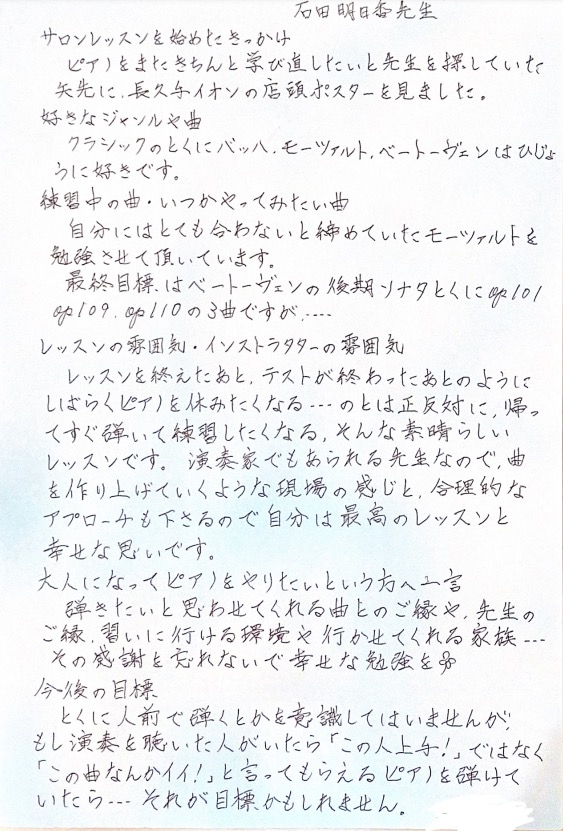 石田明日香先生
サロンレッスンを始めたきっかけ
ピアノをまたきちんと学び直したいと先生を探していた
矢先に、長久手イオンの店頭ポスターを見ました。
好きなジャンルや曲
クラシックのとくにバッハ、モーツァルト、ベートーヴェンはひじょ
うに好きです。
練習中の曲・いつかやってみたい曲
自分にはとても合わないと締めていたモーツァルトを
勉強させて頂いています。
最終目標はベートーヴェンの後期ソナタとくにop101
op109、op110の3曲ですが、....
レッスンの雰囲気・インストラクターの雰囲気
レッスンを終えたあと、テストが終わったあとのように
しばらくピアノを休みたくなる...のとは正反対に、帰っ
てすぐ弾いて練習したくなる、そんな素晴らしい
レッスンです。演奏家でもあられる先生なので、曲
を作り上げていくような現場の感じと、合理的な
アプローチも下さるので自分は最高のレッスンと
幸せな思いです。
大人になってピアノをやりたいという方へ一言
弾きたいと思わせてくれる曲とのご縁や、先生の
ご縁、習いに行ける環境や行かせてくれる家族...
その感謝を忘れないで幸せな勉強を
今後の目標
とくに人前で弾くとかを意識してはいませんが、
もし演奏を聴いた人がいたら「この人上手!」ではなく
「この曲なんかイイ!」と言ってもらえるピアノを弾けて
いたら...それが目標かもしれません。